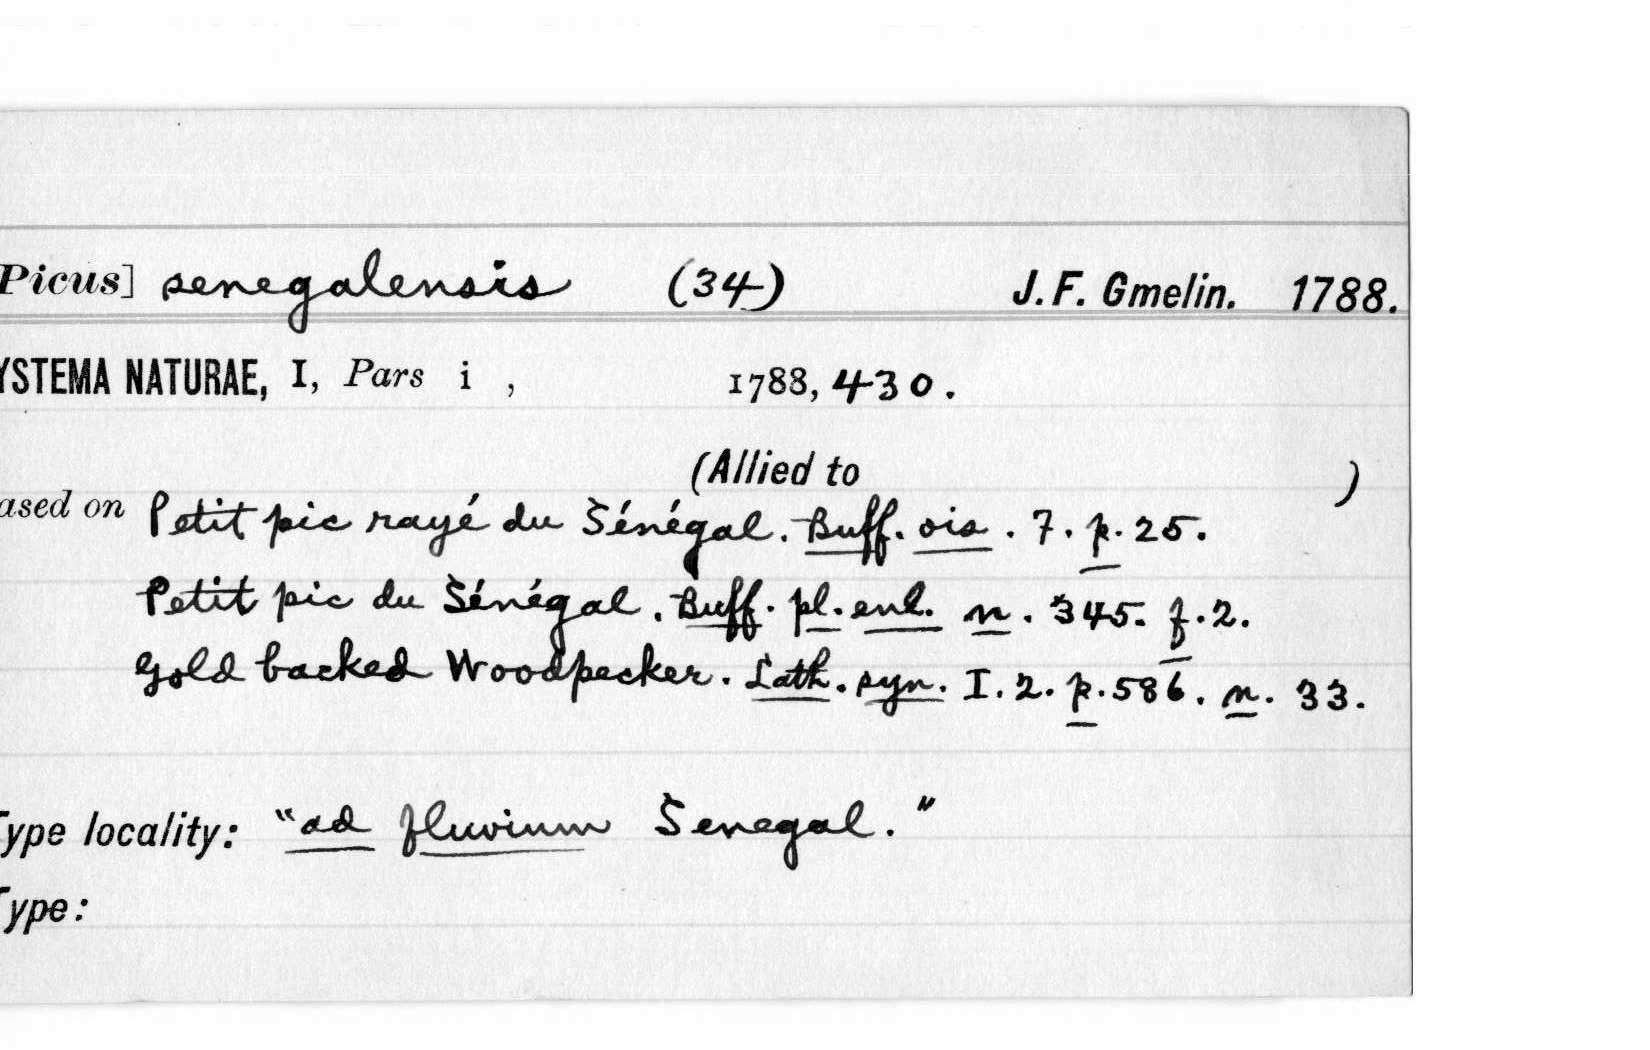 Picus] senegalensis (34) J. F. Gmelin. 1788.
YSTEMA NATURAE, I, Pars i , 1788, 430.
(Allied to )
ased on Petit pic rayé du Sénégal. Buff. ois. 7. p. 25.
Petit pic du Sénégal. Buff. pl. enl. n. 345. f. 2.
Gold backed Woodpecker. Lath. syn. I. 2. p. 586. n. 33.
Type locality: "ad fluvium Senegal."
Type: